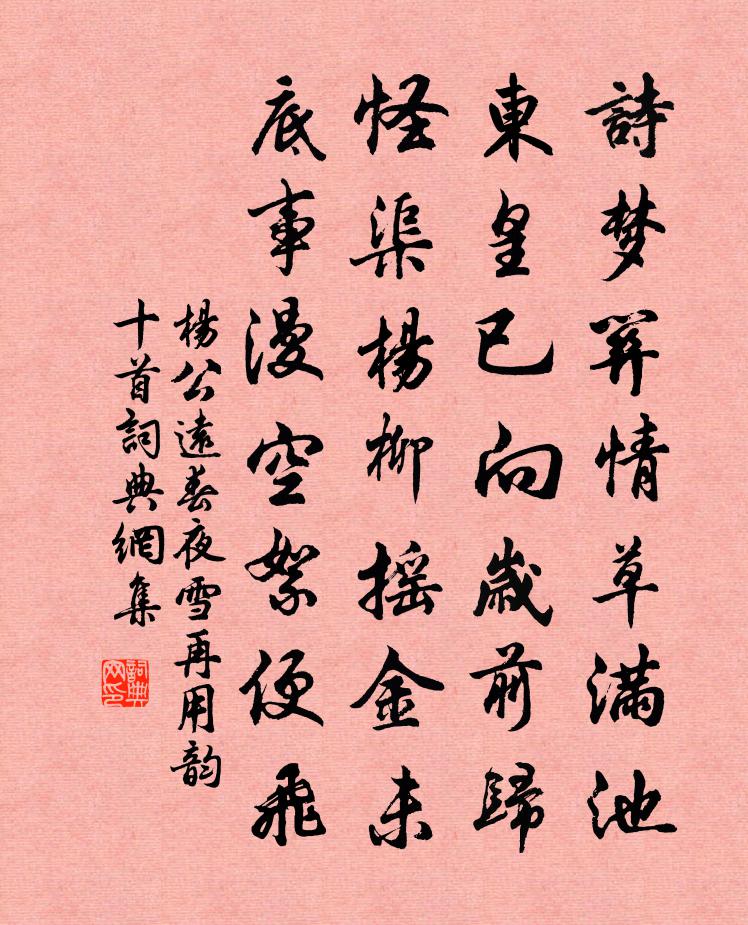 詩梦關情草滿池
東皇已向歲前歸
怪渠楊柳摇金未
底事漫空絮便飛
楊公遠春夜雪再用韵
十首詞典網集
詞典
网印